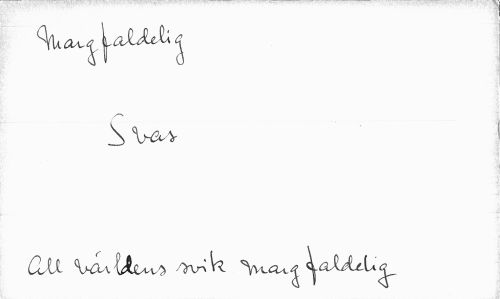 Margfaldelig
Svas
All världens svik margfaldelig